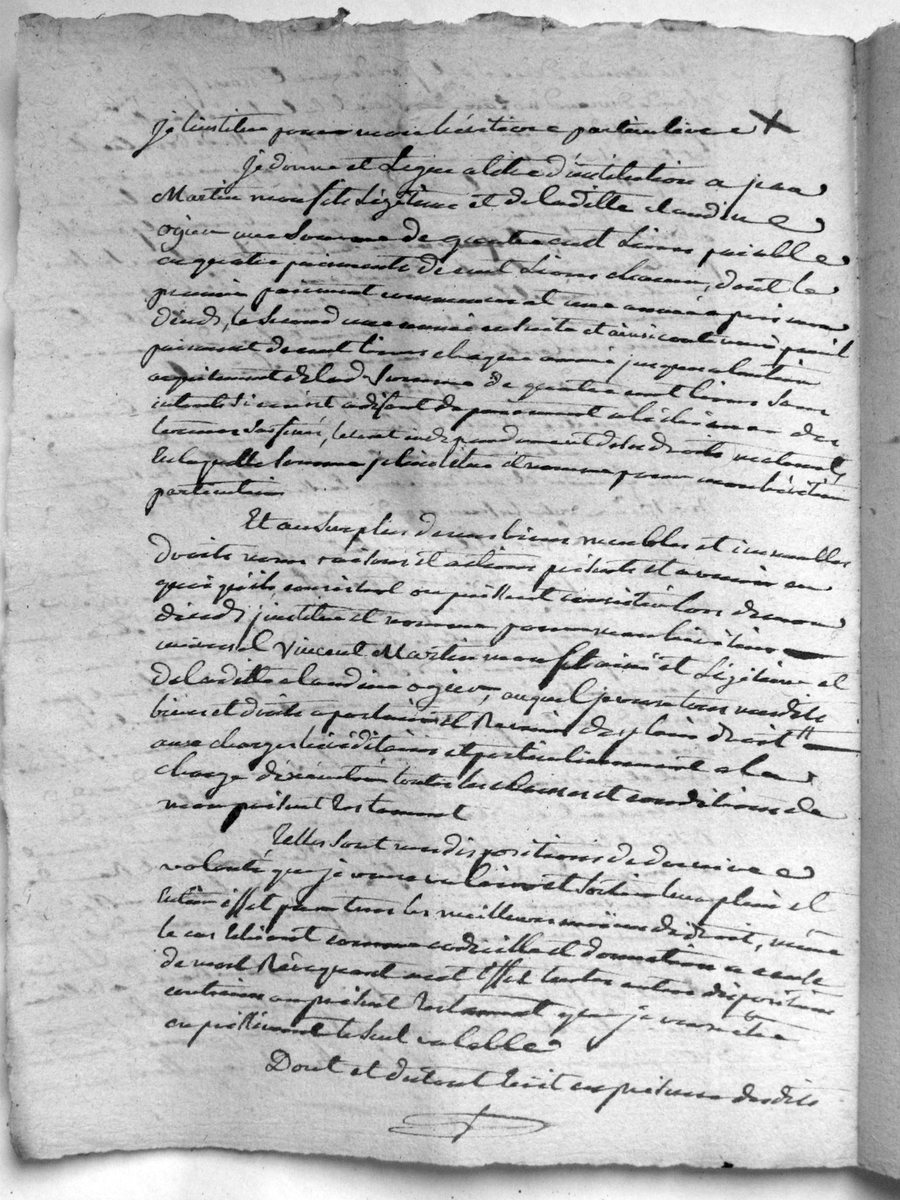 je l'institue pour mon héritiere particuliere X
Je donne et Legue a titre d'institution a jean
Martin mon fils Légitime et de ladille claudine
ogier une Somme de quatre cent Livres paiable
en quatre paiments de cent Livres chacun, dont le
premier paiment commencera une année après mon
Décéds, le Second une année ensuite et ainsi continuer pareil
paiment de cent Livres chaque année jusques a l'entier
aquitement de lad. Somme de quatre cent Livres sans
interêts Si ce n'est a défaut de paiement a l'échéance des
termes Sus fixés, le tout independament de ses droits maternels,
En laquelle Somme je l'institue et nomme pour mon héritier
particulier
Et au Surplus de mes biens meubles et immeubles
Droits noms raisons et actions présents et avenir en
quoi qu'ils consistent ou puissent consister lors de mon
décéds, j'institue et nomme pour mon héritier
universel Vincent Martin mon fils ainé et Légitime et
de laditte claudine ogier, auquel je veux tous mesdits
biens et droits apartenir et Revenir de plein droit
aux charges héréditaires et particulierement a la
charge d'exécuter toutes les clauses et conditions de
mon présent testament
Telles sont mes dispositions de derniere
volonté que je veux valoir et Sortir leur plein et
Entier effet par tous les meilleurs moiens de droit, même
le cas Echéant comme codicille et donnation a cause
de mort Révoquant a cet Effet toutes autres dispositions
contraires au présent testament que je veux être
le Seul valable
Dont et du tout Ecrit en présence desdits